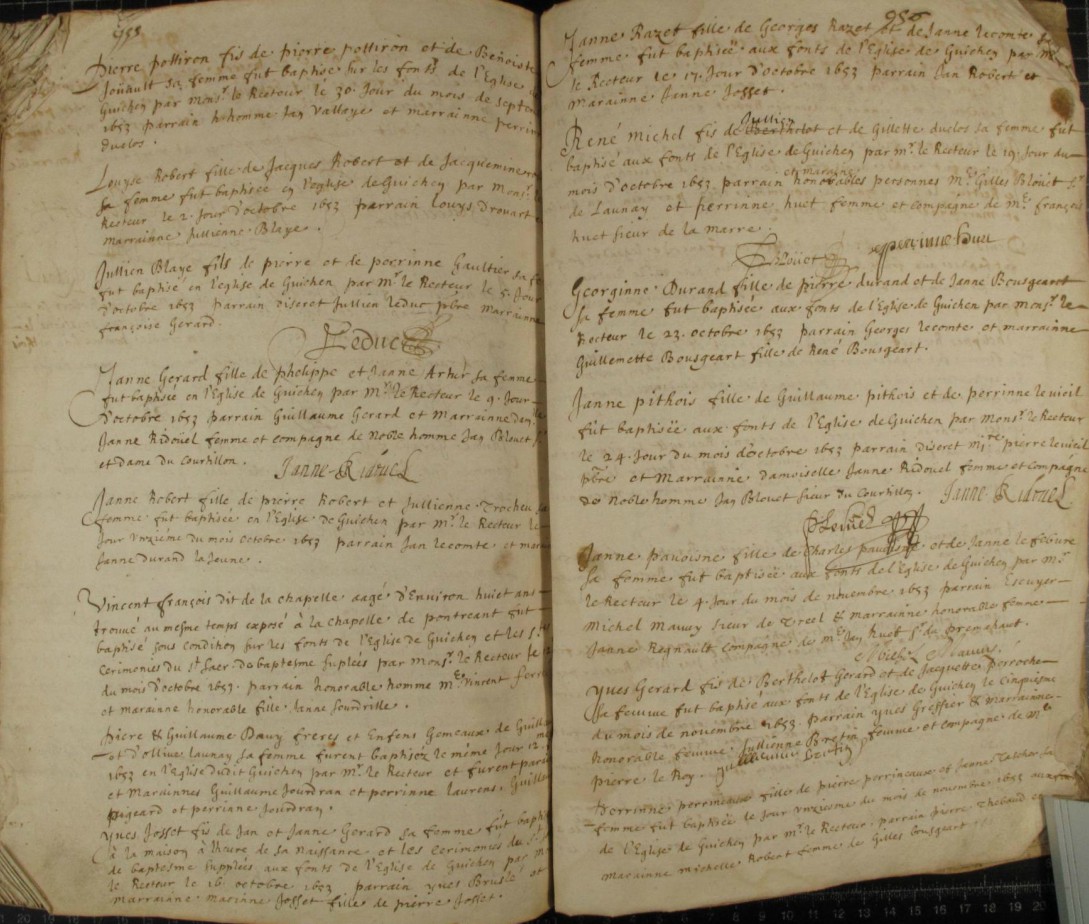 955
Pierre pottiron fis de pierre pottiron et de Benoiste
Jouault sa femme fut baptisé sur les fonts de l'Eglise
Guichen par Monsr le Recteur le 30. Jour du mois de septem
1653 parrain h homme Jan Vallaye et marrainne perrin
duclos.
Louyse Robert fille de Jacques Robert et de Jacquemine
sa femme fut baptisée en l'eglise de Guichen par Monsr
Recteur le 2. Jour d'octobre 1653 parrain Louys Drouart
marrainne Jullienne Blaye.
Jullien Blaye fils de pierre et de perrinne Gaultier sa fe
fut baptisé en l'eglise de Guichen par Mr le Recteur le 5. Jour
d'octobre 1653 parrain discret Jullien Leduc pbre marrainne
françoise Gerard.
Leduc
Janne Gerard fille de phelippe et Janne Artur sa femme
fut baptisée en l'Eglise de Guichen par Mr le Recteur le 9. Jour
d'octobre 1653 parrain Guillaume Gerard et Marrainne dam
Janne Ridouel femme et compagne de Noble homme Jan Blouet
et dame du Courtillon.
Janne Ridouel
Janne Robert fille de pierre Robert et Jullienne Trocheu sa
femme fut baptisée en l'Eglise de Guichen par Mr le Recteur le
Jour unzieme du mois octobre 1653 parrain Jan lecomte et mar
Janne Durand la Jeune.
Vincent françois dit de la chapelle aagé d'Environ huict ans
trouvé au mesme temps exposé à la chapelle de pontreant fut
baptisé sous condition sur les fonts de l'Eglise de Guichen et les s.
Cerimonies du St Sacr. de baptesme suplées par Monsr le Recteur le 12
du mois d'octobre 1653. parrain honorable homme Me Vincent
et marainne honorable fille Janne Sourdrille.
Piere & Guillaume Davy freres et Enfens Gemeaux de Guilla
et d'ollive Launay sa femme furent baptisez le même Jour 12.
1653 en l'Eglise dudit Guichen par Mr le Recteur et furent parai
et Marainnes Guillaume Jourdran et perrinne laurens. Guilla
pigeard et perrinne Jourdran.
Yves Josset fis de Jan et Janne Gerard sa femme fut bapti
à la maison à l'heure de sa Naissance. et les cerimonies du
de baptesme supplées aux fonts de l'Eglise de Guichen par M
le Recteur le 16. octobre 1653 parrain yves Bruslé et
marrainne marinne Josset fille de pierre Josset.
956
Janne Razet fille de Georges Razet et de Janne lecomte s
femme fut baptiseë aux fonts de l'Eglise de Guichen par Mr
le Recteur le 17. Jour d'octobre 1653 parrain Jan Robert et
marainne Janne Josset.
Jullien
René Michel fis de Berthelot et de Gillette duclos sa femme fut
baptisé aux fonts de l'Eglise de Guichen par Mr le Recteur le 19. Jour du
et marainne
mois d'octobre 1653 parrain honorables personnes Me Gilles Blouet Sr
de Launay et perrinne huet femme et compagne de Me françois
huet sieur de la marre.
Blouet perrinne huet
Georginne Durand fille de pierre durand et de Janne Bousgeart
sa femme fut baptisée aux fonts de l'Eglise de Guichen par Monsr le
Recteur le 23. octobre 1653 parrain Georges lecomte et marrainne
Guillemette Bousgeart fille de René Bousgeart.
Janne pithois fille de Guillaume pithois et de perrinne levieil
fut baptiseë aux fonts de l'Eglise de Guichen par Monsr le Recteur
le 24. Jour du mois d'octobre 1653 parrain discret Mre pierre levieil
pbre et Marrainne damoiselle Janne Ridouel femme et compagne
de Noble homme Jan Blouet sieur du Courtillon. Janne Ridouel
P Levieil
Janne pavoisne fille de Charles pavoisne et de Janne lefebvre
sa femme fut baptiseë aux fonts de l'Eglise de Guichen par Mr
le Recteur le 4. Jour du mois de novembre 1653 parrain Escuyer
Michel Mauvy sieur de Treel & marrainne honorable femme
Janne Regnault compagne de Me Jan huet Sr de premehaut.
Michel Mauvy.
Yves Gerard fis de Berthelot Gerard et de Jacquette Derroche
sa femme fut baptisé aux fonts de l'Eglise de Guichen le cinquisme
du mois de novembre 1653. parrain yves Greffier & marrainne
Honorable femme Jullienne Bretin femme et compagne de Me
pierre le Roy. Jullienne Bretin
Perrinne perrineaux fille de pierre perrineaux et Janne sa
femme fut baptiseë le Jour unziesme du mois de novembre 1653 aux fon
de l'Eglise de Guichen par Mr le Recteur. parrain pierre Thebaud et
marainne michelle Robert femme de Gilles Bousgeart